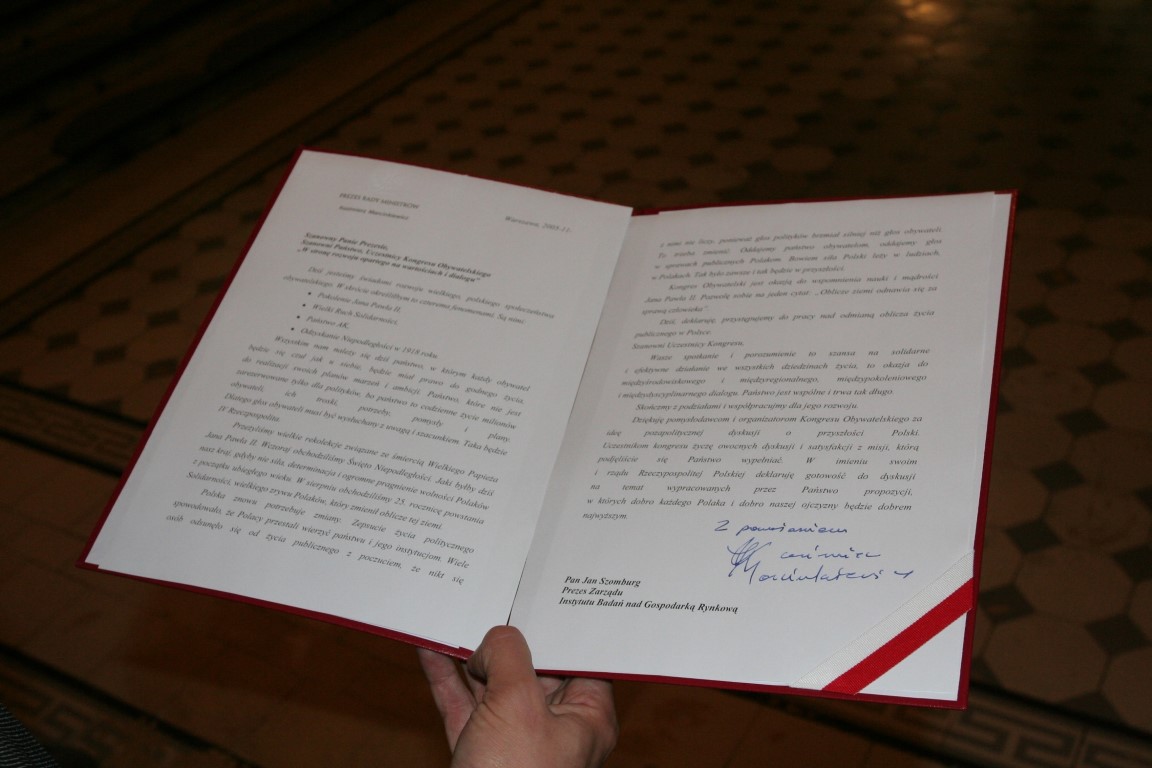 PREZES RADY MINISTRÓW
Kazimierz Marcinkiewicz
Warszawa, 2005-11-
Szanowny Panie Prezesie,
Szanowni Państwo, Uczestnicy Kongresu Obywatelskiego
„W stronę rozwoju opartego na wartościach i dialogu”
Dziś jesteśmy świadomi rozwoju wielkiego, polskiego społeczeństwa
obywatelskiego. W skrócie określiłbym to czterema fenomenami. Są nimi:
• Pokolenie Jana Pawła II.
• Wielki Ruch Solidarności.
• Państwo AK.
• Odzyskanie Niepodległości w 1918 roku.
Wszystkim nam należy się dziś państwo, w którym każdy obywatel
będzie się czuł jak u siebie, będzie miał prawo do godnego życia,
do realizacji swoich planów marzeń i ambicji. Państwo, które nie jest
zarezerwowane tylko dla polityków, bo państwo to codzienne życie milionów
obywateli, ich troski, potrzeby, pomysły i plany.
Dlatego głos obywateli musi być wysłuchany z uwagą i szacunkiem. Taka będzie
IV Rzeczpospolita.
Przeżyliśmy wielkie rekolekcje związane ze śmiercią Wielkiego Papieża
Jana Pawła II. Wczoraj obchodziliśmy Święto Niepodległości. Jaki byłby dziś
nasz kraj, gdyby nie siła, determinacja i ogromne pragnienie wolności Polaków
z początku ubiegłego wieku. W sierpniu obchodziliśmy 25. rocznicę powstania
Solidarności, wielkiego zrywu Polaków, który zmienił oblicze tej ziemi.
Polska znowu potrzebuje zmiany. Zepsucie życia politycznego
spowodowało, że Polacy przestali wierzyć państwu i jego instytucjom. Wiele
osób odsunęło się od życia publicznego z poczuciem, że nikt się
z nimi nie liczy, ponieważ głos polityków brzmiał silniej niż głos obywateli.
To trzeba zmienić. Oddajemy państwo obywatelom, oddajemy głos
w sprawach publicznych Polakom. Bowiem siła Polski leży w ludziach,
w Polakach. Tak było zawsze i tak będzie w przyszłości.
Kongres Obywatelski jest okazją do wspomnienia nauki i mądrości
Jana Pawła II. Pozwolę sobie na jeden cytat: „Oblicze ziemi odnawia się za
sprawą człowieka”.
Dziś, deklaruję, przystępujemy do pracy nad odmianą oblicza życia
publicznego w Polsce.
Szanowni Uczestnicy Kongresu,
Wasze spotkanie i porozumienie to szansa na solidarne
i efektywne działanie we wszystkich dziedzinach życia, to okazja do
międzyśrodowiskowego i międzyregionalnego, międzypokoleniowego
i międzydyscyplinarnego dialogu. Państwo jest wspólne i trwa tak długo.
Skończmy z podziałami i współpracujmy dla jego rozwoju.
Dziękuję pomysłodawcom i organizatorom Kongresu Obywatelskiego za
ideę pozapolitycznej dyskusji o przyszłości Polski.
Uczestnikom kongresu życzę owocnych dyskusji i satysfakcji z misji, którą
podjęliście się Państwo wypełniać. W imieniu swoim
i rządu Rzeczypospolitej Polskiej deklaruję gotowość do dyskusji
na temat wypracowanych przez Państwo propozycji,
w których dobro każdego Polaka i dobro naszej ojczyzny będzie dobrem
najwyższym.
Z poważaniem
Kazimierz
Marcinkiewicz
Pan Jan Szomburg
Prezes Zarządu
Instytutu Badań nad Gospodarką Rynkową